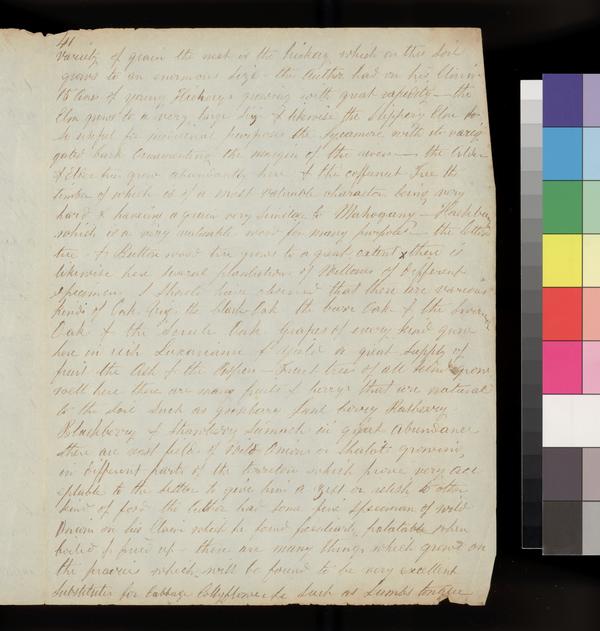 41
variety of grain the next is the hickory which on this Soil
grows to an enormous size - the Author had on his Claim
15 Acres of young Hickory growing with great rapidity - the
Elm grows to a very large size & likewise the Slippery Elm so
so useful for medicinal purposes the Sycamore with its varie
gated bark Ornamenting the margin of the rivers - the Alder
& Elder here grow abundantly here & the coffeenut Tree the
timber of which is of a most valuable character being very
hard & having a grain very similar to Mahogany - Hackbury
which is a very valuable wood for many purposes - the
tree & Button wood tree grows to a great extent x there is
likewise here several plantations of Willows of different
specimens I should have observed that there are various
kinds of Oak the black Oak the burr Oak & the
Oak & the Oak Grapes of every kind grow
here in rich Luxuriance & yield a great Supply of
fruit the Ash & the Aspen - Fruit trees of all kinds grow
well here there are many fruits & berrys that are natural
to the Soil Such as gooseberry June berry Rasberry
Blackberry & Strawberry Sumach in great abundance
there are vast fields of Wild Onion or Shalots growing
in different parts of the township which prove very acc
eptable to the Settler to give him a zest or relish to other
kind of food the Author had some fine specimens of wild
Onion on his Claim which he found peculiarly palatable when
boiled & fried up - there are many things which grow on
the prairies which will be found to be very excellent
substitutes for Cabbage Collyflower &c Such as Lambs tongue